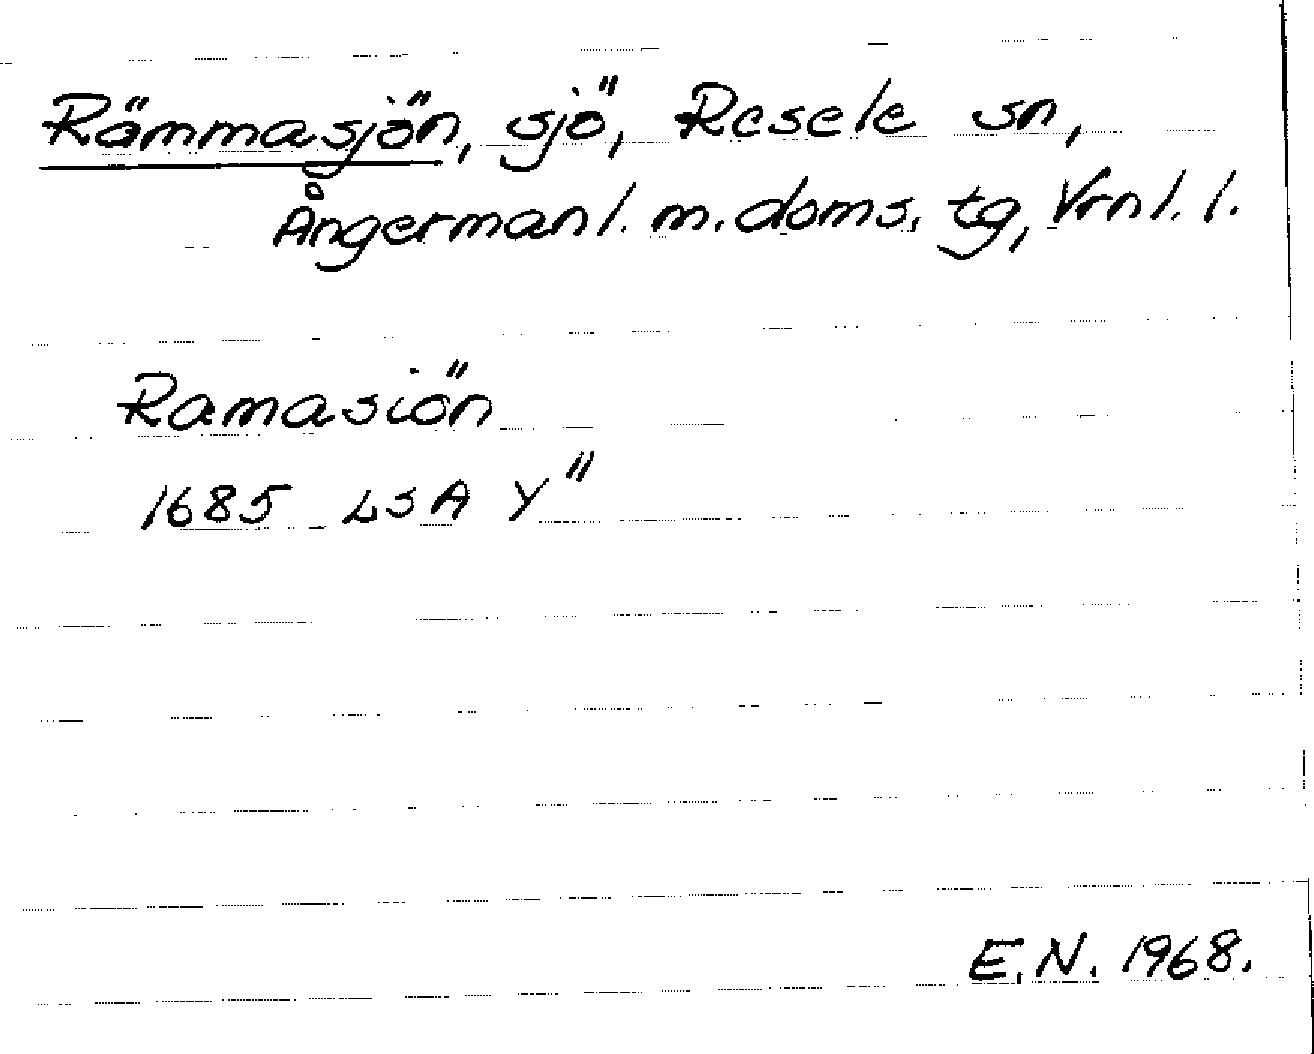 Rämmasjön, sjö, Resele sn,
Ångermanl. m. doms. tg, Vrnl. l.
Ramasiön
1685 LSA Y"
E.N. 1968.